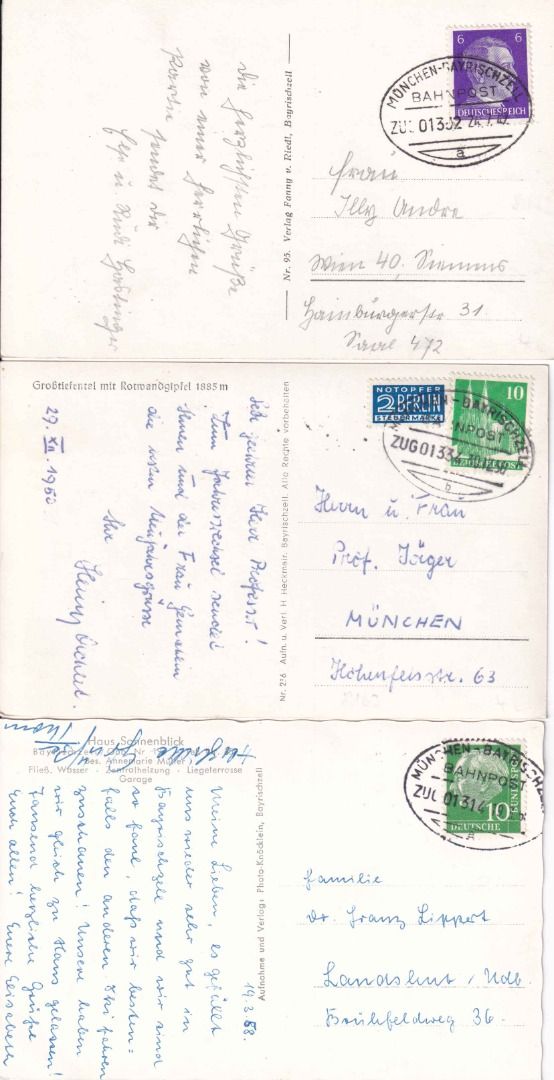 Die herzlichsten Grüße
von einer herrlichen
Partie sendet Dir
6
6
DEUTSCHES REICH
MÜNCHEN-BAYRISCHZELL
BAHNPOST
ZUG 01332 24.7.42
a
Nr. 95. Verlag Fanny v. Riedl, Bayrischzell
Frau
Illy Andre
Wien 40, Siemens
Hainburgerstr 31
Saal 472
Großtiefental mit Rotwandgipfel 1885m
29. XII 1950
Sehr geehrter Herr Professor!
Zum Jahreswechsel sendet
Ihnen und der Frau Gemahlin
die besten Neujahrsgrüsse
Ihr
Nr. 226 Aufn. u. Verl. H Heckmair. Bayrischzell. Alle Rechte vorbehalten
NOTOPFER
2 BERLIN
STEUERMARKE
10
DEUTSCHE POST
MÜNCHEN-BAYRISCHZELL
BAHNPOST
ZUG 01332
b
Herrn u. Frau
Prof. Jäger
MÜNCHEN
Höhenfelsstr. 63
Haus Sonnenblick
Bes. Annemarie Müller
Fließ. Wasser - Zentralheizung - Liegeterrasse
Garage
14.3.58.
Meine Lieben, es gefällt
uns wieder sehr gut in
Bayrischzell und wir sind
so faul, daß wir besten-
falls den anderen Ski fahren
zuschauen! Unsere haben
wir gleich zu Haus gelassen!
Tausend herzliche Grüße
Euch allen! Eure Elisabeth
Aufnahme und Verlag: Photo-Knöcklein, Bayrischzell
MÜNCHEN-BAYRISCHZELL
BAHNPOST
ZUG 01314
a
10
DEUTSCHE BUNDESPOST
Familie
Dr. Franz Lippert
Landshut / Ndb.
Brühfeldweg 36.